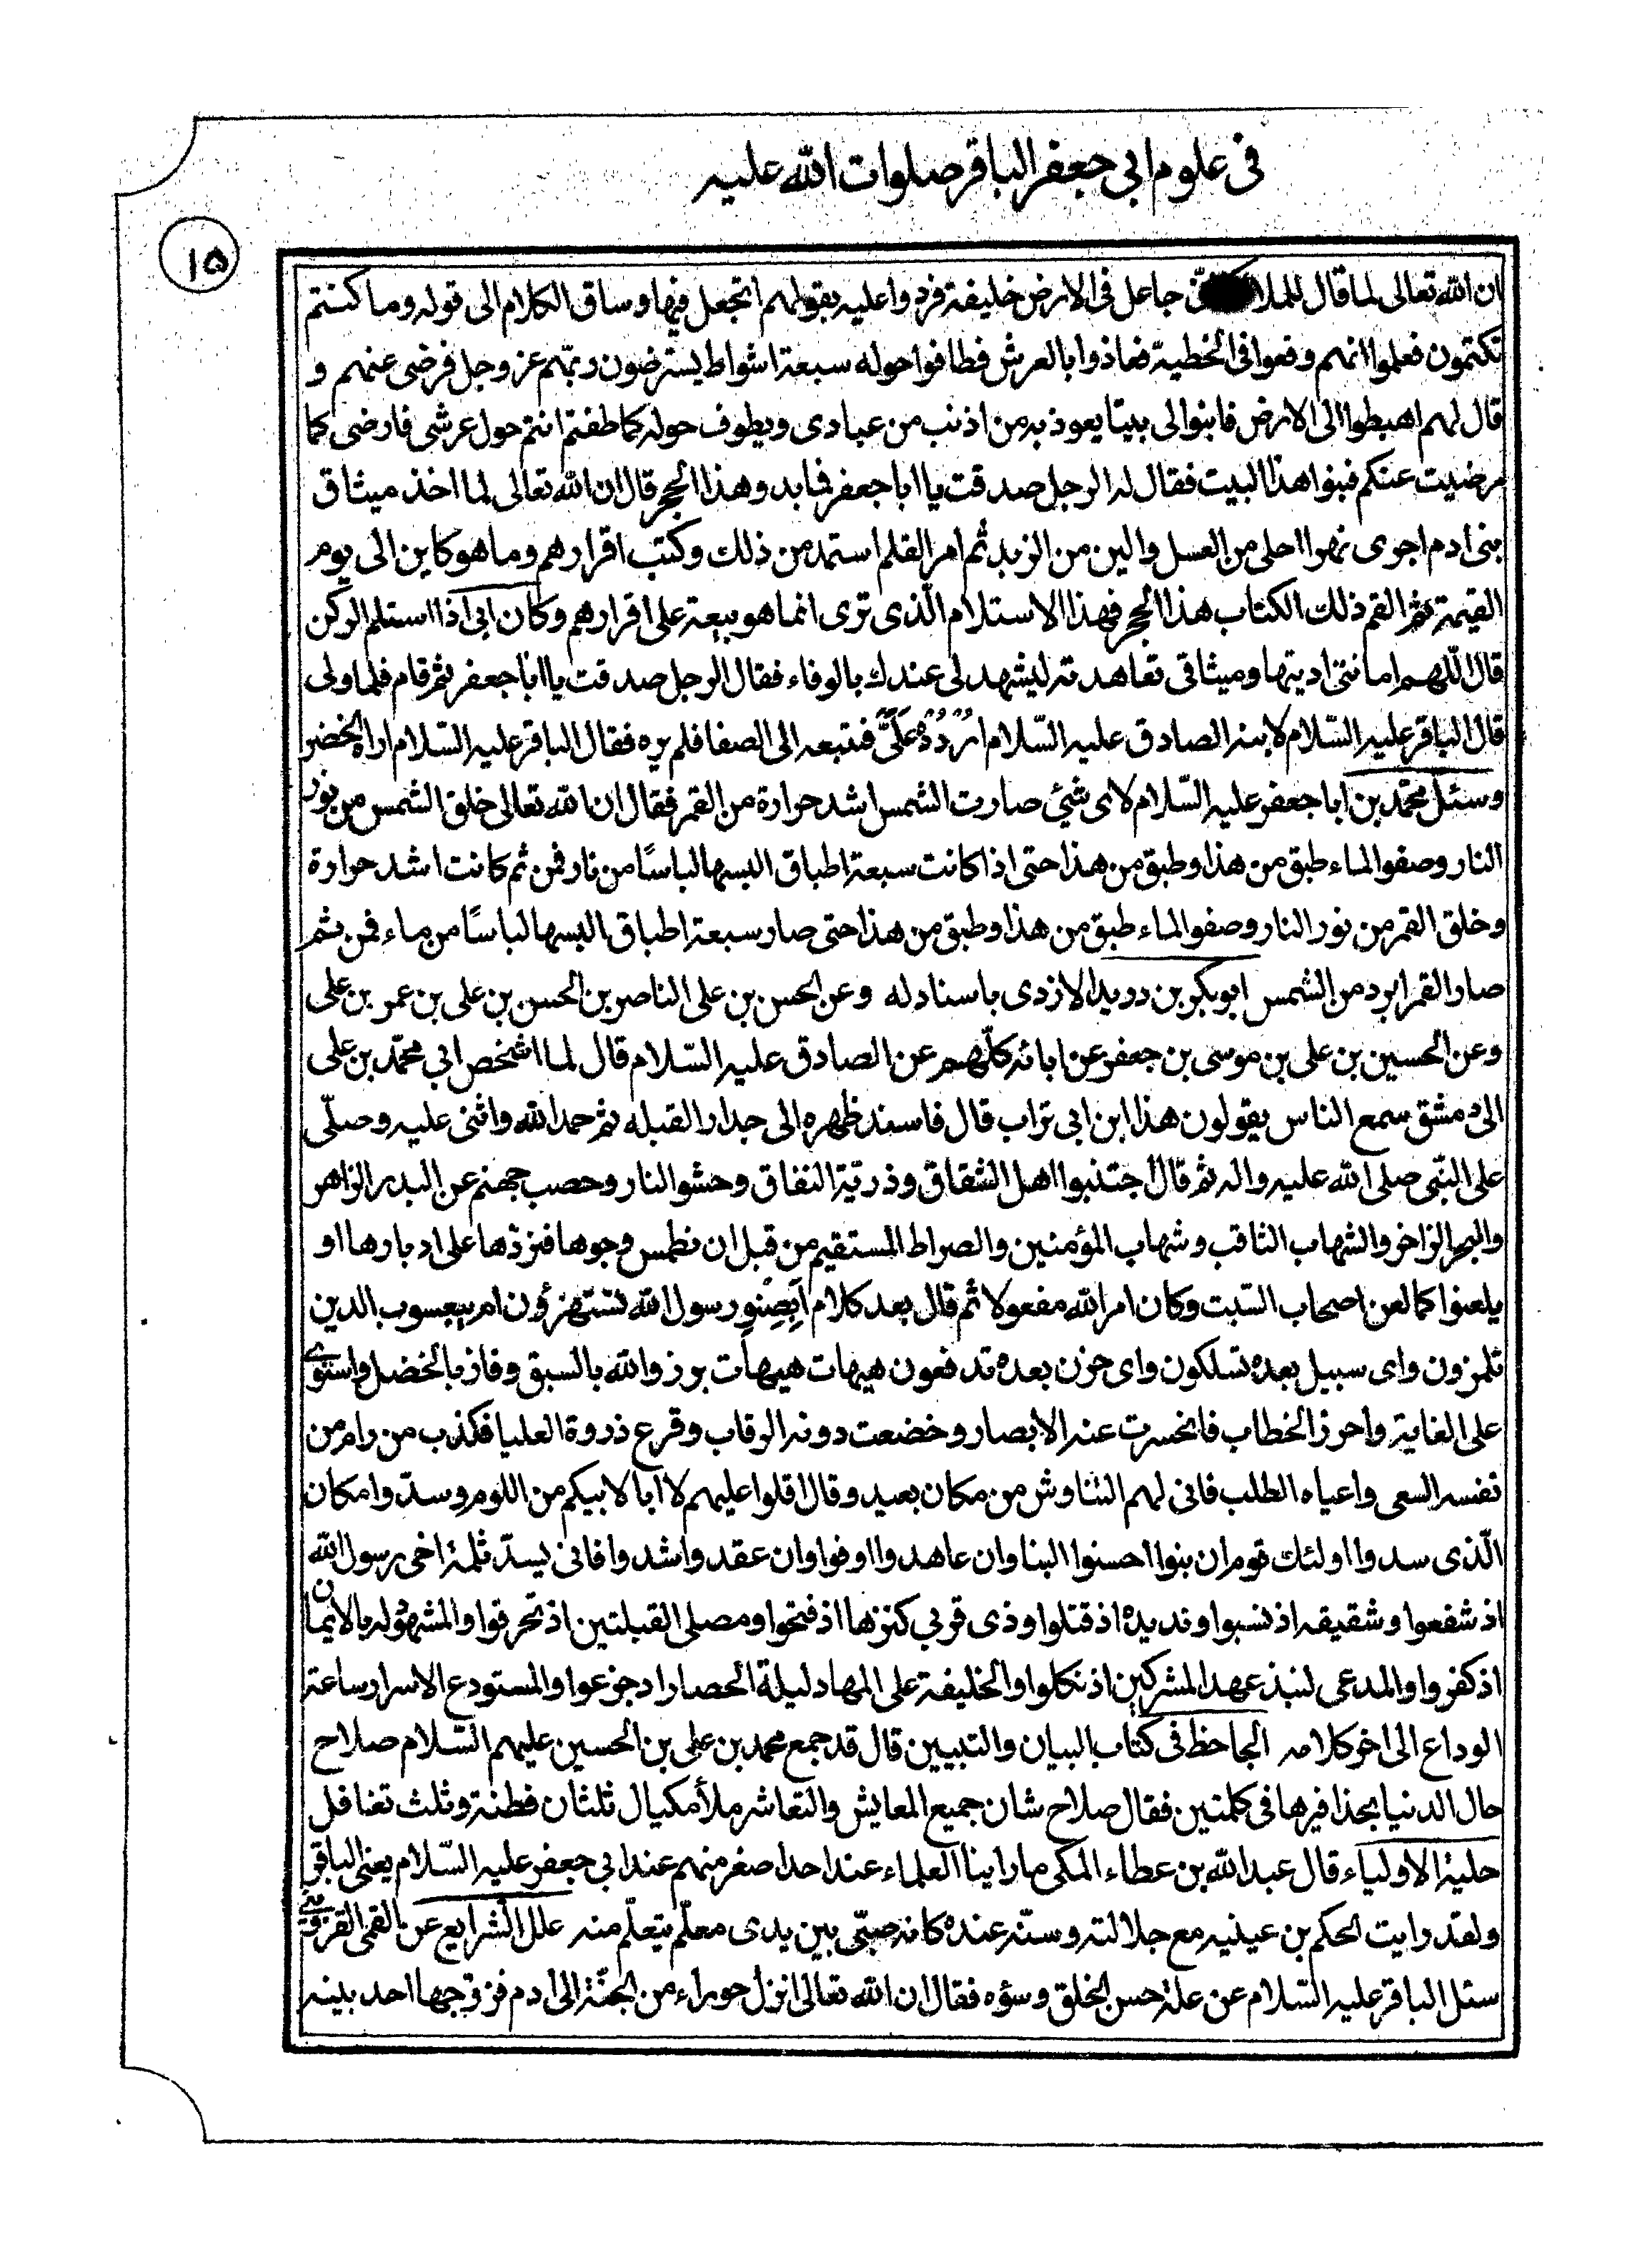 فى علوم ابي جعفر الباقر صلوات الله عليه
١٥
ان الله تعالى لما قال للملا جاعل فى الارض خليفة فردوا عليه بقولهم اتجعل فيها وساق الكلام الى قوله وما كنتم
تكتمون فعلموا انهم وقعوا فى الخطية فعاذوا بالعرش فطافوا حوله سبعة اشواط يسترضون ربّهم عز وجل فرضى عنهم و
قال لهم اهبطوا الى الارض فابنوا لى بيتا يعوذ به من اذنب من عبادى ويطوف حوله كما طفتم انتم حول عرشى فارضى كما
رضيت عنكم فبنوا هذا البيت فقال له الرجل صدقت يا ابا جعفر فما بدو هذا الحجر قال ان الله تعالى لما اخذ ميثاق
بنى ادم اجرى نهرا احلى من العسل والين من الزبد ثم امر القلم استمد من ذلك وكتب اقرارهم وما هو كاين الى يوم
القيمة ثم القم ذلك الكتاب هذا الحجر فهذا الاستلام الّذى ترى انما هو بيعة على اقرارهم وكان ابى اذا استلم الركن
قال اللّهم امانتى اديتها وميثاقى تعاهدته ليشهد لى عندك بالوفاء فقال الرجل صدقت يا ابا جعفر ثم قام فلما ولى
قال الباقر عليه السّلام لابنه الصادق عليه السّلام اُرْدُدْهُ عَلَيَّ فتبعه الى الصفا فلم يره فقال الباقر عليه السّلام اراه الخضر
وسئل محمّد بن ابا جعفر عليه السّلام لاى شئ صارت الشمس اشد حرارة من القمر فقال ان الله تعالى خلق الشمس من نور
النار وصفو الماء طبق من هذا وطبق من هذا حتى اذا كانت سبعة اطباق البسها لباسًا من نار فمن ثم كانت اشد حرارة
وخلق القمر من نور النار وصفو الماء طبق من هذا وطبق من هذا حتى صار سبعة اطباق البسها لباسًا من ماء فمن ثم
صار القمر ابرد من الشمس ابو بكر بن دريد الازدى باسناد له وعن الحسن بن على الناصر بن الحسن بن على بن عمر بن على
وعن الحسين بن على بن موسى بن جعفر عن ابائه كلّهم عن الصادق عليه السّلام قال لما اشخص ابي محمّد بن على
الى دمشق سمع الناس يقولون هذا ابن ابى تراب قال فاسند ظهره الى جدار القبله ثم حمد الله واثنى عليه وصلّى
على النّبى صلى الله عليه واله ثم قال اجتنبوا اهل الشقاق وذريّة النفاق وحشو النار وحصب جهنم عن البدر الزاهر
والبحر الزاخر والشهاب الثاقب وشهاب المؤمنين والصراط المستقيم من قبل ان نطمس وجوها فنردّها على ادبارها او
يلعنوا كما لعن اصحاب السّبت وكان امر الله مفعولا ثم قال بعد كلام اَبِصِنْوِ رسول الله تستهزؤن ام بيعسوب الدين
تلمزون واى سبيل بعده تسلكون واى حزن بعده تدفعون هيهات هيهات برز والله بالسبق وفاز بالخضل واستوى
على الغاية واحرز الخطاب فانحسرت عنه الابصار وخضعت دونه الرقاب وقرع ذروة العليا فكذب من رام من
نفسه السعى واعياه الطلب فانى لهم التناوش من مكان بعيد وقال اقلوا عليهم لا ابا لابيكم من اللوم وسدّوا مكان
الّذى سدوا اولئك قوم ان بنوا احسنوا البنا وان عاهدوا اوفوا وان عقدوا شدوا فانى يسدّ ثلمة اخى رسول الله
اذ شفعوا وشقيقه اذ نسبوا ونديده اذ قتلوا وذى قربي كنزها اذ فتحوا ومصلى القبلتين اذ تحرفوا والمشهود له بالايمان
اذ كفروا والمدعى لنبذ عهد المشركين اذ نكلوا والخليفة على المهاد ليلة الحصار اذ جزعوا والمستودع الاسرار ساعة
الوداع الى اخر كلامه الجاحظ فى كتاب البيان والتبيين قال قد جمع محمد بن على بن الحسين عليهم السّلام صلاح
حال الدنيا بحذافيرها فى كلمتين فقال صلاح شان جميع المعايش والتعاشر ملأ مكيال ثلثان فطنة وثلث تغافل
حلية الاولياء قال عبد الله بن عطاء المكى ما راينا العلماء عند احد اصغر منهم عند ابى جعفر عليه السّلام يعنى الباقر
ولقد رايت الحكم بن عيينيه مع جلالته وسنّه عنده كانه صبّى بين يدى معلّم يتعلّم منه علل الشرايع عن القمى القزوينى
سئل الباقر عليه السّلام عن علة حسن الخلق وسؤه فقال ان الله تعالى انزل حوراء من الجنّة الى ادم فزوّجها احد بنيه